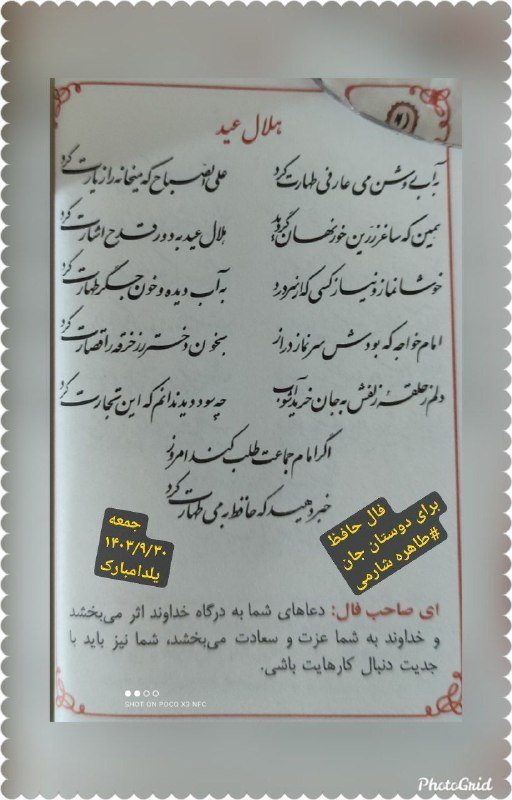 (۹)
هلال عید
به آب روشن می عارفی طهارت کرد
علی الصباح که میخانه را زیارت کرد
همین که ساغر زرین خور نهان گردید
هلال عید به دور قدح اشارت کرد
خوشا نماز و نیاز کسی که از سر درد
به آب دیده و خون جگر طهارت کرد
امام خواجه که بودش سر نماز دراز
بخون دختر رز خرقه را قصارت کرد
دلم ز حلقه زلفش به جان خرید آشوب
چه سود دید ندانم که این تجارت کرد
اگر امام جماعت طلب کند امروز
خبر دهید که حافظ به می طهارت کرد
جمعه
۱۴۰۳/۹/۳۰
یلدامبارک
فال حافظ
برای دوستان جان
#طاهره شارمی
ای صاحب فال: دعاهای شما به درگاه خداوند اثر می‌بخشد
و خداوند به شما عزت و سعادت می‌بخشد، شما نیز باید با
جدیت دنبال کارهایت باشی.
SHOT ON POCO X3 NFC
PhotoGrid